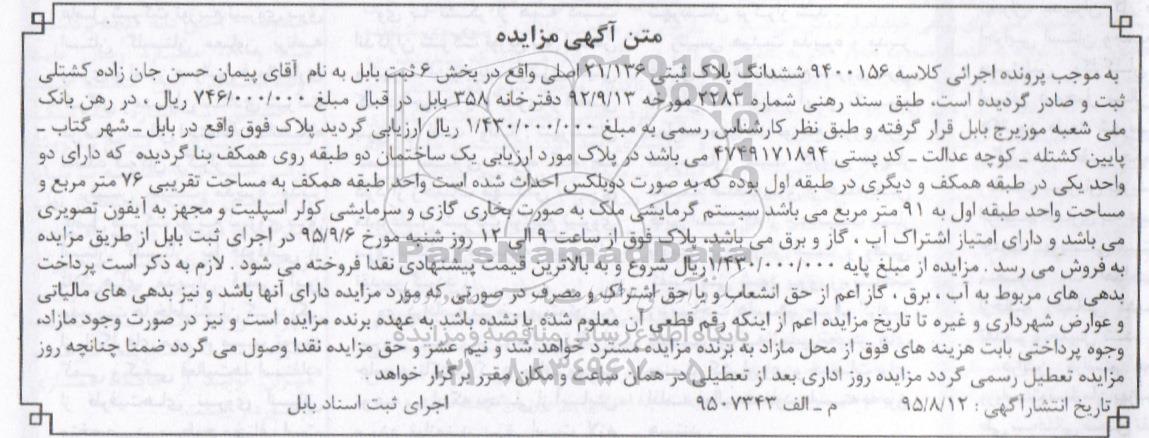 متن آگهی مزایده
به موجب پرونده اجرائی کلاسه ۹۴۰۰۱۵۶ ششدانگ پلاک ثبتی ۲۱/۱۳۶ اصلی واقع در بخش ۶ ثبت بابل به نام آقای پیمان حسن جان زاده کشتلی
ثبت و صادر گردیده است، طبق سند رهنی شماره ۲۲۸۳ مورخه ۹۲/۹/۱۳ دفترخانه ۳۵۸ بابل در قبال مبلغ ۷۴۶/۰۰۰/۰۰۰ ریال، در رهن بانک
ملی شعبه موزیرج بابل قرار گرفته و طبق نظر کارشناس رسمی به مبلغ ۱/۴۳۰/۰۰۰/۰۰۰ ریال ارزیابی گردید پلاک فوق واقع در بابل ـ شهر گتاب ـ
پایین کشتله ـ کوچه عدالت ـ کد پستی ۴۷۴۹۱۷۱۸۹۴ می باشد در پلاک مورد ارزیابی یک ساختمان دو طبقه روی همکف بنا گردیده که دارای دو
واحد یکی در طبقه همکف و دیگری در طبقه اول بوده که به صورت دوبلکس احداث شده است واحد طبقه همکف به مساحت تقریبی ۷۶ متر مربع و
مساحت واحد طبقه اول به ۹۱ متر مربع می باشد سیستم گرمایشی ملک به صورت بخاری گازی و سرمایشی کولر اسپلیت و مجهز به آیفون تصویری
می باشد و دارای امتیاز اشتراک آب ، گاز و برق می باشد، پلاک فوق از ساعت ۹ الی ۱۲ روز شنبه مورخ ۹۵/۹/۶ در اجرای ثبت بابل از طریق مزایده
به فروش می رسد . مزایده از مبلغ پایه ۱/۴۳۰/۰۰۰/۰۰۰ ریال شروع و به بالاترین قیمت پیشنهادی نقدا فروخته می شود . لازم به ذکر است پرداخت
بدهی های مربوط به آب ، برق ، گاز اعم از حق انشعاب و یا حق اشتراک و مصرف در صورتی که مورد مزایده دارای آنها باشد و نیز بدهی های مالیاتی
و عوارض شهرداری و غیره تا تاریخ مزایده اعم از اینکه رقم قطعی آن معلوم شده یا نشده باشد به عهده برنده مزایده است و نیز در صورت وجود مازاد،
وجوه پرداختی بابت هزینه های فوق از محل مازاد به برنده مزایده مسترد خواهد شد و نیم عشر و حق مزایده نقدا وصول می گردد ضمنا چنانچه روز
مزایده تعطیل رسمی گردد مزایده روز اداری بعد از تعطیلی در همان ساعت و مکان مقرر برگزار خواهد
تاریخ انتشار آگهی : ۹۵/۸/۱۲ م ـ الف ۹۵۰۷۲۴۲ اجرای ثبت اسناد بابل
ParsNamadData
پایگاه اطلاع رسانی مناقصه و مزایده